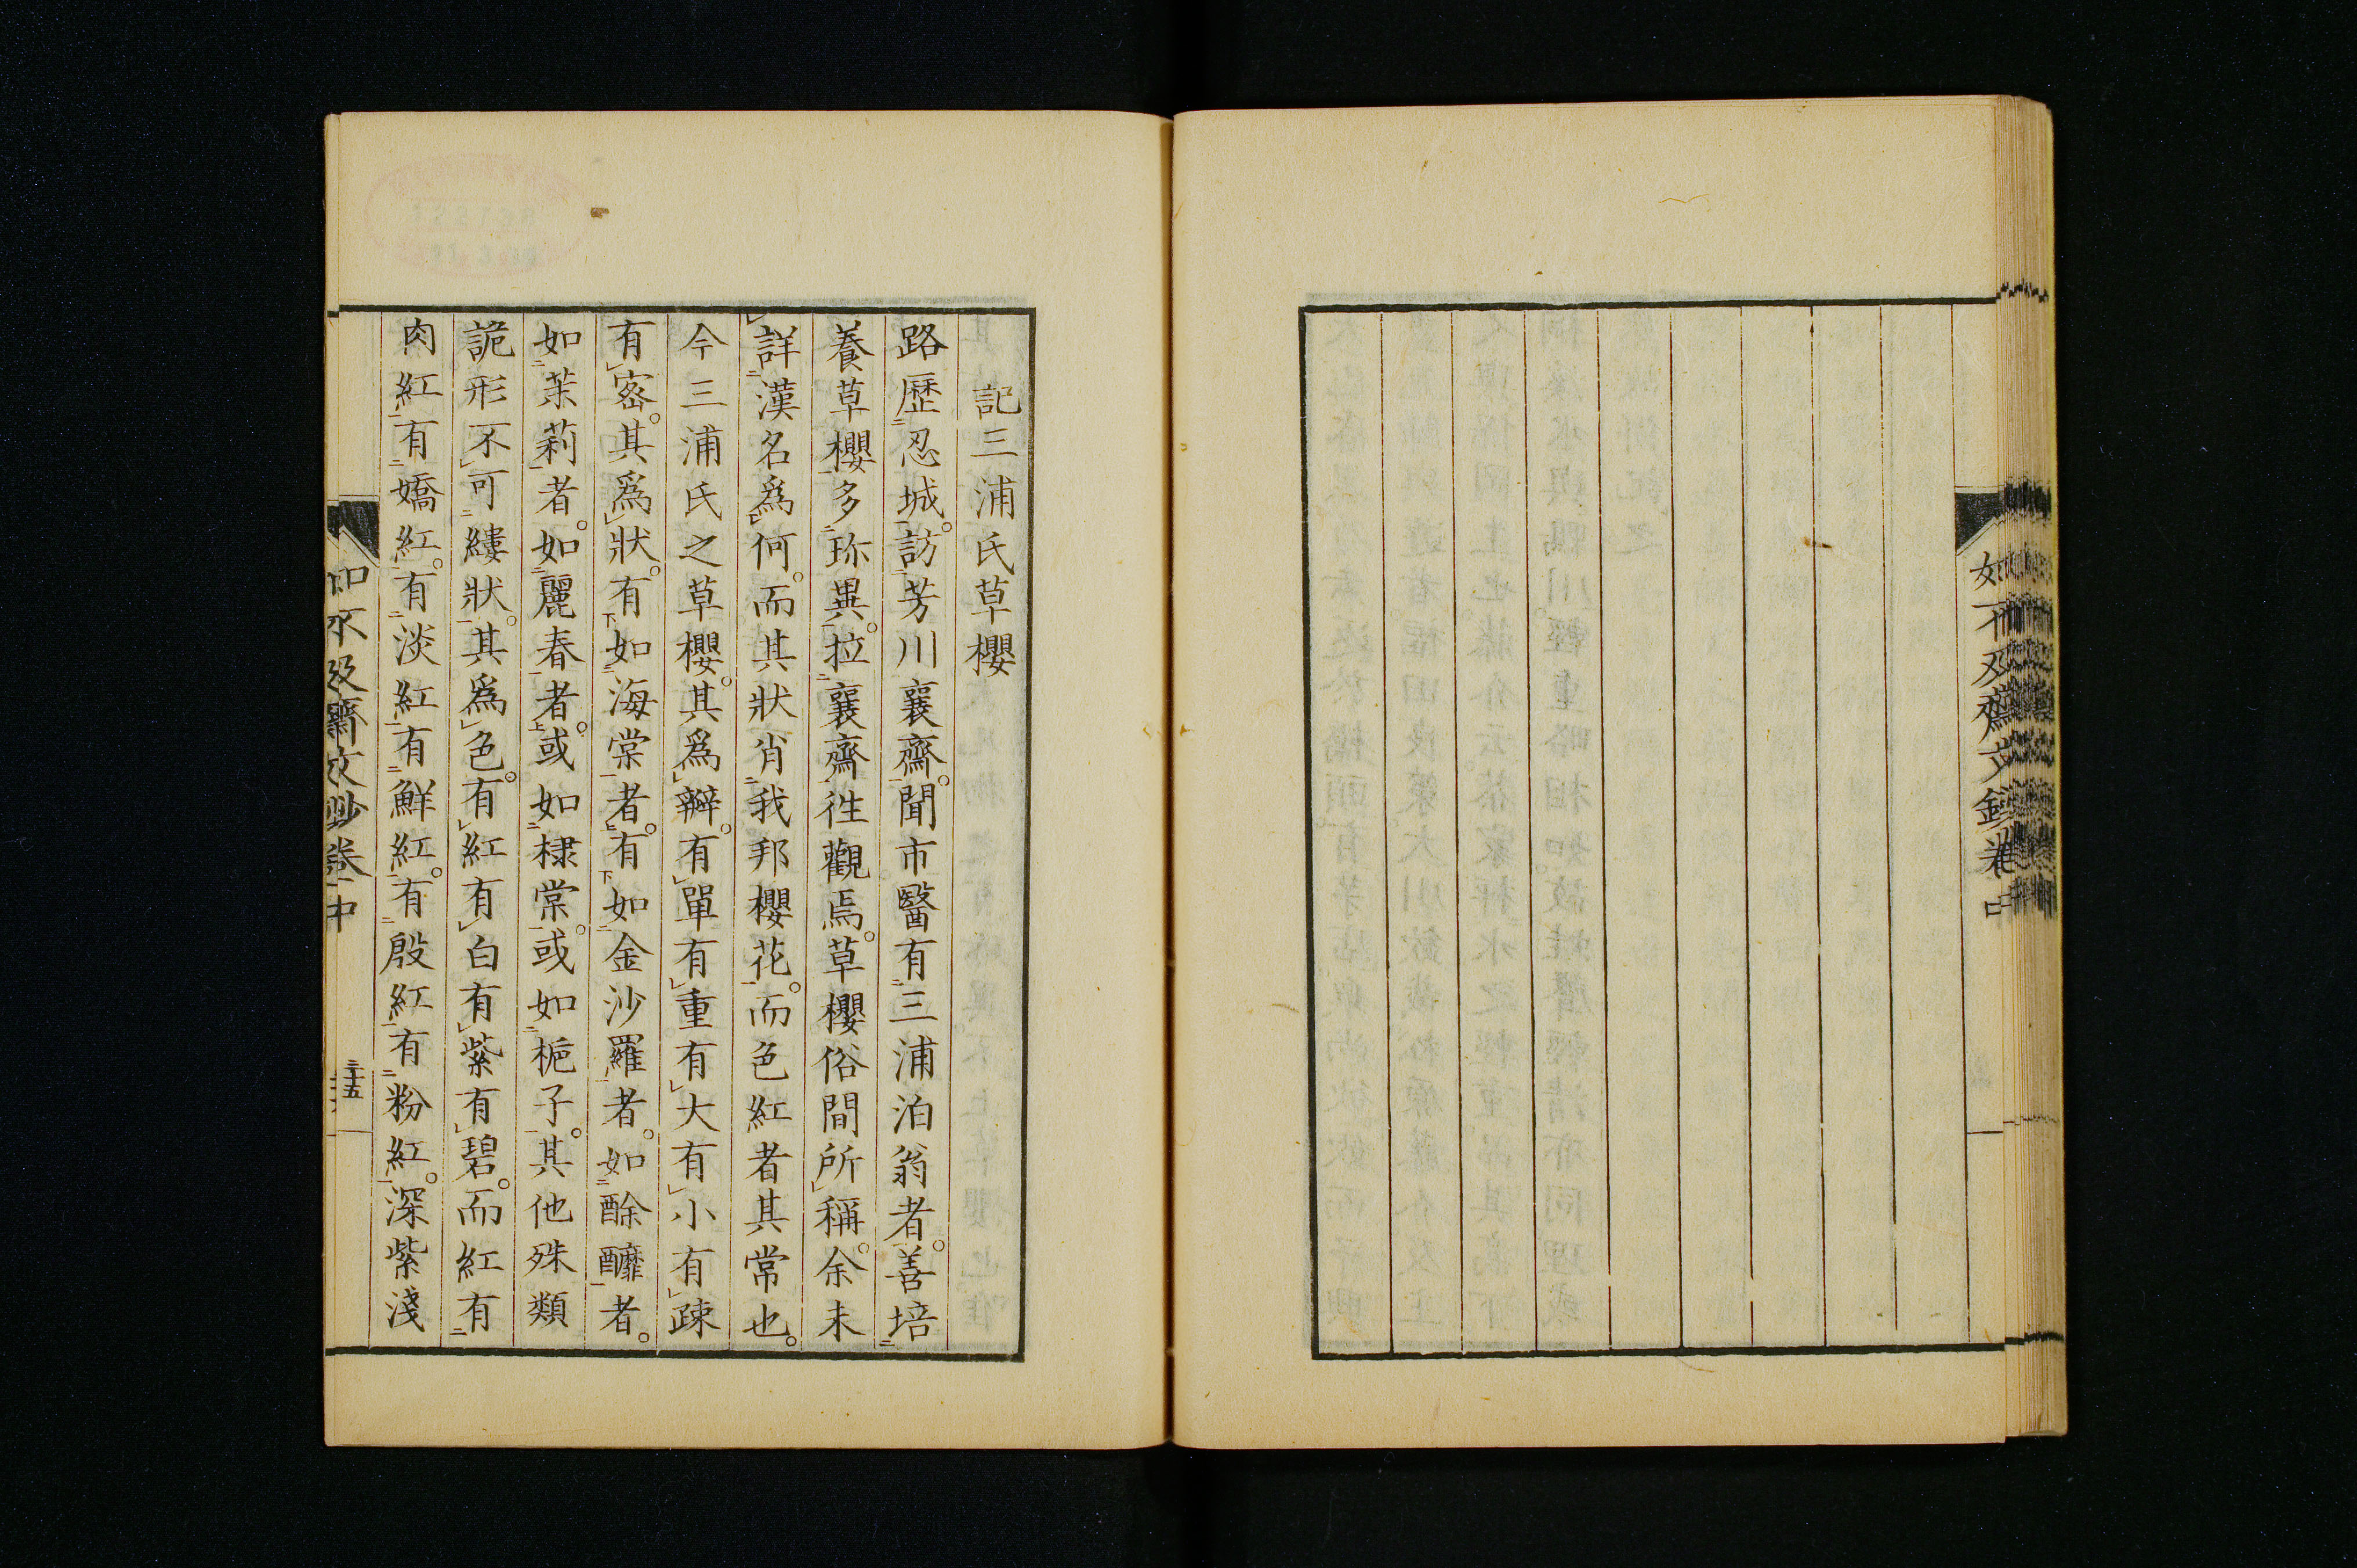 如不及齋文鈔卷中
記三浦氏草櫻
路歷忍城。訪芳川襄齋。聞市醫有三浦泊翁者。善培
養草櫻多珎異。拉襄齋徃觀焉。草櫻俗間所稱。余未
詳漢名爲何。而其狀肖我邦櫻花。而色紅者其常也。
今三浦氏之草櫻。其爲瓣。有單有重有大有小有疎
有密。其爲狀。有如海棠者。有如金沙羅者。如酴醿者。
如茉莉者。如麗春者。或如棣棠。或如梔子。其他殊類
詭形不可縷狀。其爲色。有紅有白有紫有碧。而紅有
肉紅有嬌紅。有淡紅有鮮紅。有殷紅有粉紅。深紫淺
如不及齋文鈔卷中
三十五